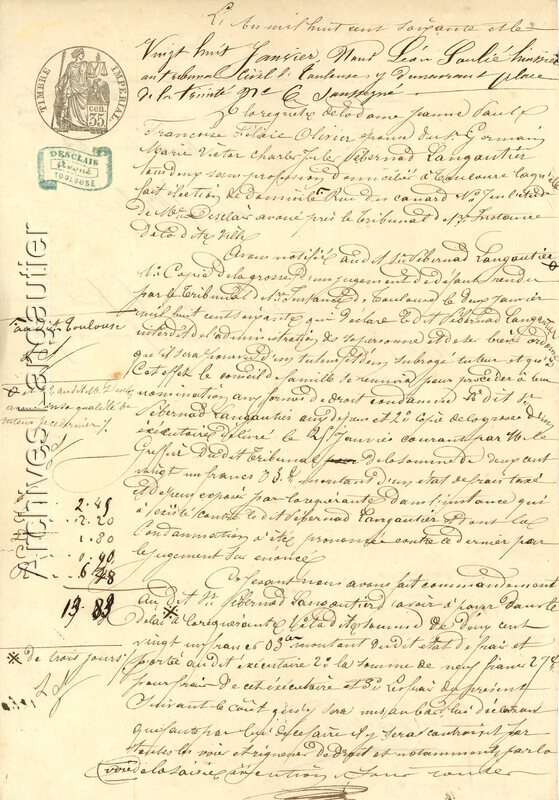 L'An mil huit cent soixante et le
Vingt huit Janvier Nous Léon Soulié huissier
au tribunal Civil de Toulouse y demeurant place
de la trinité No 6 Soussigné
TIMBRE IMPERIAL
35 cen.
A la requête de la dame Jeanne Paule
Françoise Olivier épouse du Sr Germain
Marie Victor Charles Jules Sébernad Langautier
tous deux sans profession domiciliés à Toulouse laquelle
DESCLAIS
Avoué
TOULOUSE
fait élection de domicile Rue du Canard No
de Me Desclais avoué près le tribunal de 1re Instance
de la dite Ville
Avons notifié audit Sr Sébernad Langautier
1o Copie de la grosse d'un jugement de défaut rendu
par le tribunal de 1re Instance de Toulouse le deux Janvier
mil huit cent soixante qui déclare le dit Sébernad Langautier
interdit de l'administration de sa personne et de ses biens ordonne
qu'il sera pourvu d'un tuteur et d'un subrogé tuteur et qu'à
Cet effet le conseil de famille se réunira pour procéder à leur
nomination aux formes de droit condamne le dit Sr
Sébernad Langautier aux dépens et 2o copie de la grosse d'un
exécutoire délivré le 25 Janvier courant par Mr le
Greffier du dit tribunal de la somme de deux cent
vingt un francs 03 c montant d'un état de frais taxé
et dépens exposé par la requérante dans l'instance qui
a existé contre le dit Sébernad Langautier et dont la
Condamnation a été prononcée contre ce dernier par
le jugement sus énoncé
Toulouse
qualité de
tuteur
2.45
2.20
1.80
0.90
6.48
13.83
Ce faisant nous avons fait commandement
Au dit Sr Sébernad Langautier d'avoir à payer dans le
délai à la requérante 1o la dite somme de Deux cent
vingt un francs 03 c montant du dit état de frais et
porté au dit exécutoire 2o la somme de neuf francs 27 c
pour frais de cet exécutoire et 3o les frais du présent
Suivant le coût qui en sera mis au bas lui déclarant
que faute par lui de ce faire il y sera contraint par
toutes les voies et rigueurs de droit et notamment par la
voie de la saisie exécution
* de trois jours
Archives Langautier